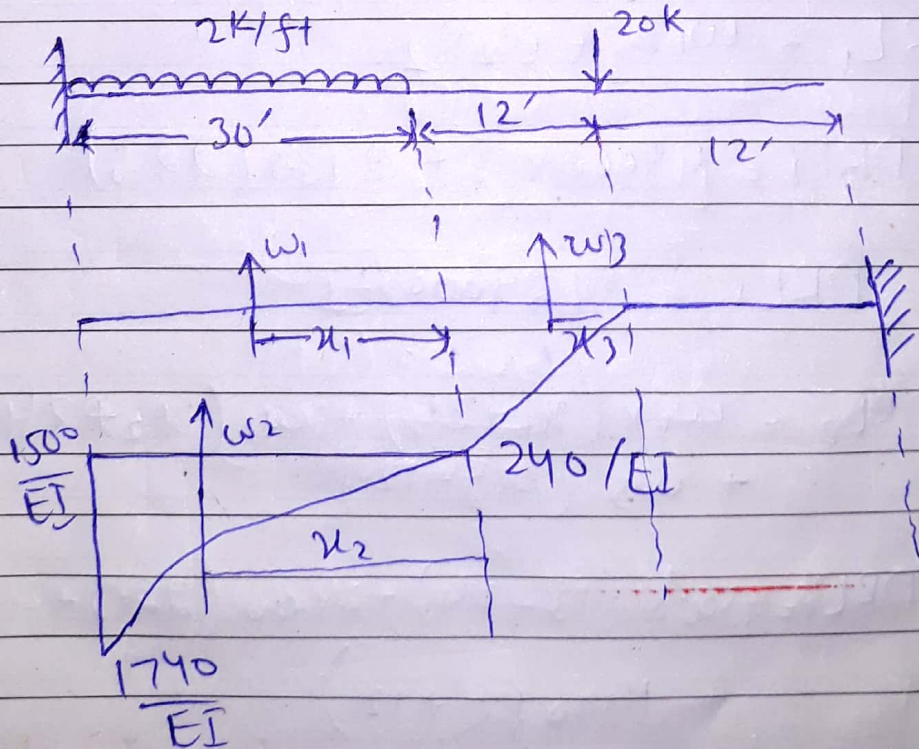 2K/ft
20K
30'
12'
12'
w1
w3
x1
x3
1500/EI
w2
240/EI
x2
1740/EI